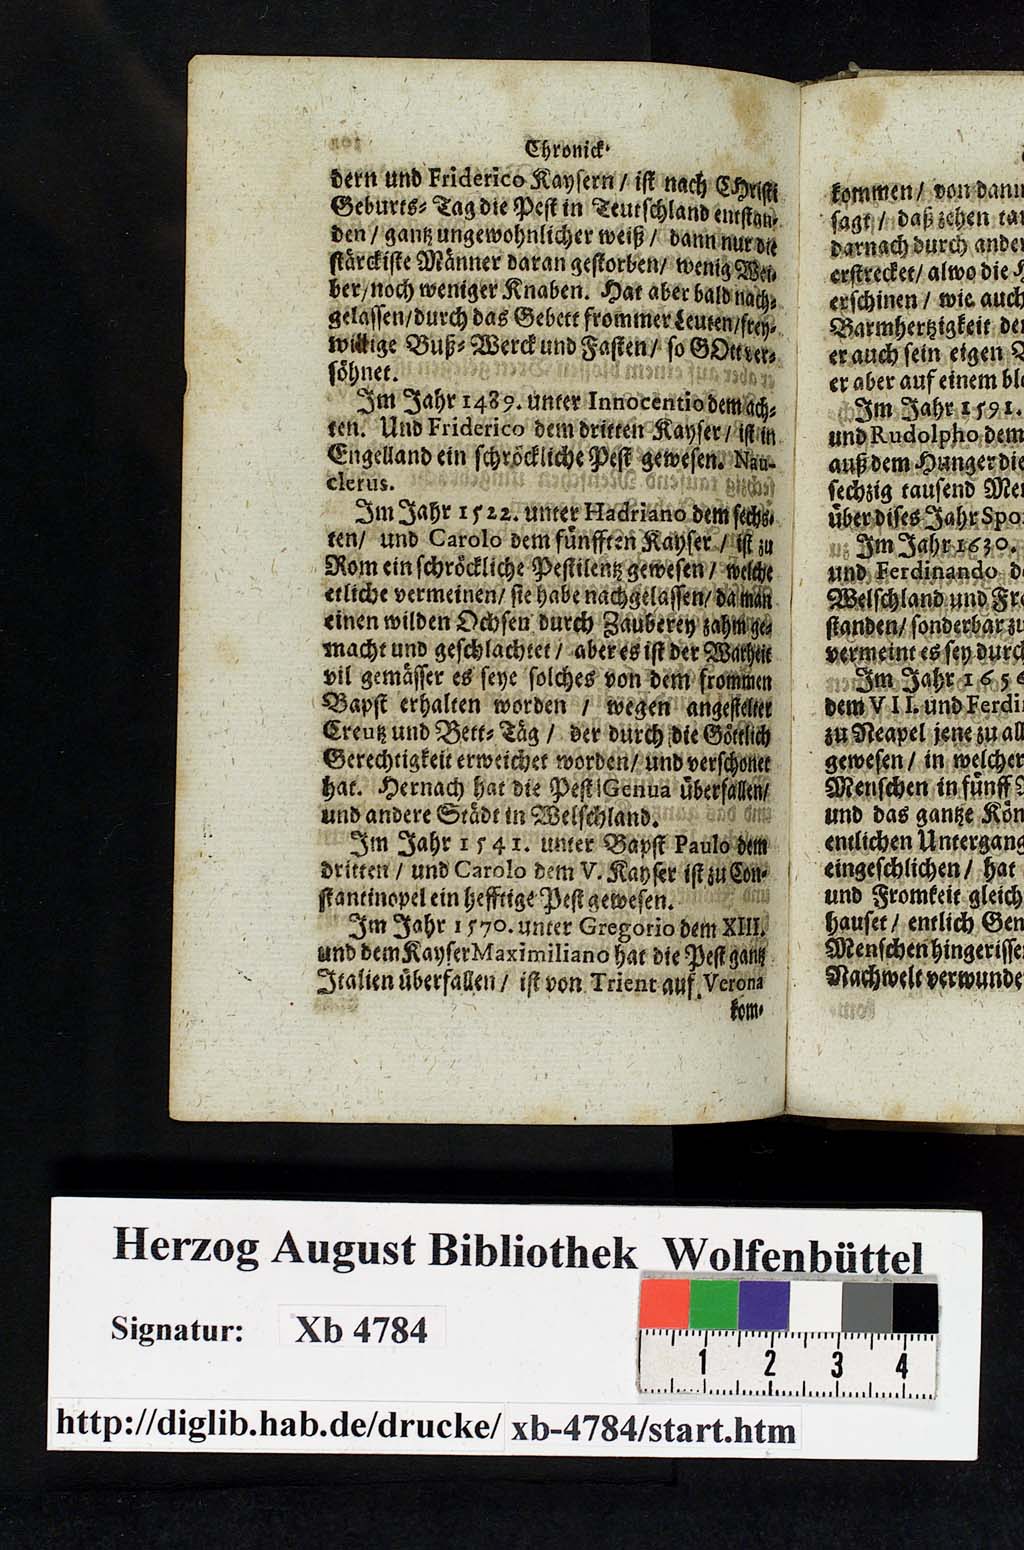 Chronick.
dern und Friderico Kaysern / ist nach CHristi
Geburts⸗ Tag die Pest in Teutschland entstan⸗
den / gantz ungewohnlicher weiß / dann nur die
stärckiste Männer daran gestorben / wenig Wei⸗
ber / noch weniger Knaben. Hat aber bald nach⸗
gelassen / durch das Gebett frommer Leuten / frey⸗
willige Buß⸗ Werck und Fasten / so GOtt ver⸗
söhnet.
Im Jahr 1489. unter Innocentio dem ach⸗
ten. Und Friderico dem dritten Kayser / ist in
Engelland ein schröckliche Pest gewesen. Nau-
clerus.
Im Jahr 1522. unter Hadriano dem sechs⸗
ten / und Carolo dem fünfften Kayser / ist zu
Rom ein schröckliche Pestilentz gewesen / welche
etliche vermeinen / sie habe nachgelassen / da man
einen wilden Ochsen durch Zauberey zahm ge⸗
macht und geschlachtet / aber es ist der Warheit
vil gemässer es seye solches von dem frommen
Bapst erhalten worden / wegen angestelter
Creutz und Bett⸗ Täg / der durch die Göttlich
Gerechtigkeit erweichet worden / und verschonet
hat. Hernach hat die Pest Genua überfallen /
und andere Städt in Welschland.
Im Jahr 1541. unter Bapst Paulo dem
dritten / und Carolo dem V. Kayser ist zu Con⸗
stantinopel ein hefftige Pest gewesen.
Im Jahr 1570. unter Gregorio dem XIII.
und dem Kayser Maximiliano hat die Pest gantz
Italien überfallen / ist von Trient auf Verona
kom⸗
kommen / von dann
sagt / daß zehen
darnach durch ander
erstrecket / alwo die
erschinen / wie auch
Barmhertzigkeit
er auch sein eigen
er aber auf einem
Im Jahr 1591.
und Rudolpho dem
auß dem Hunger die
sechzig tausend
über dises Jahr
Im Jahr 1630.
und Ferdinando
Welschland und
standen / sonderbar zu
vermeint es sey durch
Im Jahr 1656
dem VII. und
zu Neapel jene zu
gewesen / in welcher
Menschen in fünff
und das gantze
entlichen Untergang
eingeschlichen / hat
und Fromkeit gleich
hauset / entlich
Menschen hingerissen
Nachwelt
Herzog August Bibliothek Wolfenbüttel
Signatur: Xb 4784
1 2 3 4
http://diglib.hab.de/drucke/ xb-4784/start.htm